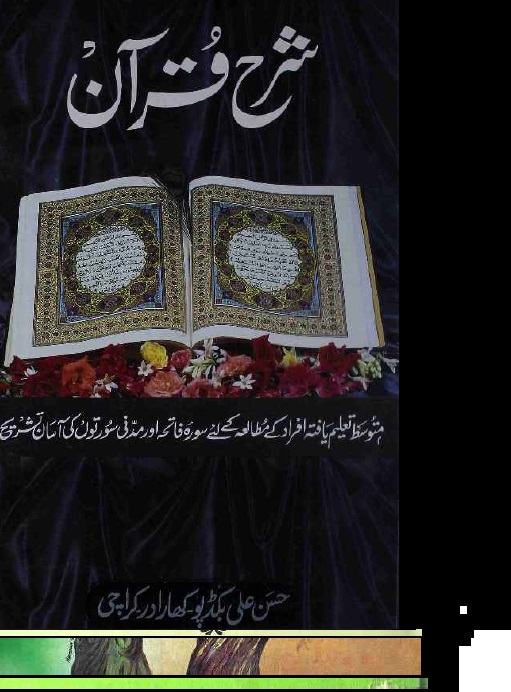 شرح قُرآن
متوسّط تعلیم یافتہ افراد کے مُطالعہ کے لئے سورۂ فاتحہ اور مدَنی سُورتوں کی آسان تشریح
حسَن علی بکڈپو۔ کھارادر کراچی